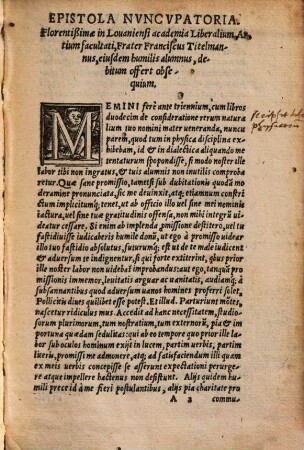 EPISTOLA NVNCVPATORIA.
Florentißimæ in Louaniensi academia Liberalium Ar
tium facultati, Frater Franciscus Titelman
nus, eiusdem humilis alumnus, de
bitum offert obse
quium.
MEMINI ferè ante triennium, cum libros
duodecim de consideratione rerum natura
lium tuo nomini mater veneranda, nuncu
parem, quod tum in physica disciplina ex
hibebam, id & in dialectica aliquando me
tentaturum spopondisse, si modo noster ille
labor tibi non ingratus, & tuis alumnis non inutilis comproba
retur. Quæ sanè promissio, tametsi sub dubitationis quodā mo
deramine pronunciata, sic me deuinxit, atq; etiamnum constri
ctum implicitumq; tenet, ut ab officio illo uel sine mei nominis
iactura, uel sine tuæ gratitudinis offensa, non mihi integrū ui
deatur cessare. Si enim ab implenda pmissione destitero, uel tu
fastidiuisse iudicaberis humile donū, ut ego à promisso uidear
illo tuo fastidio absolutus, futurumq; est ut de te malè iudicent
& aduersum te indignentur, si qui forte extiterint, qbus prior
noster labor non uidebatur improbandus: aut ego, tanquā pro
missionis immemor, leuitatis arguar ac uanitatis, audiamq; à
subsannantibus quod aduersum uanos homines proferri solet,
Pollicitis diues quilibet esse potest. Et illud. Parturiunt mōtes,
nascetur ridiculus mus. Accedit ad hanc necessitatem, studio-
sorum plurimorum, tum nostratium, tum externorū, pia & im
portuna quædam sedulitas: qui ab eo tempore quo prior ille la
bor sub oculos hominum exijt in lucem, partim uerbis, partim
literis, promissi me admonere, atq; ad satisfaciendum illi quam
ex meis uerbis concepisse se asserunt expectationi perurge-
re atque impellere hactenus non desistunt. Alijs quidem humi
li prece id à me fieri postulantibus, alijs pia charitate pro
A 2 commu-